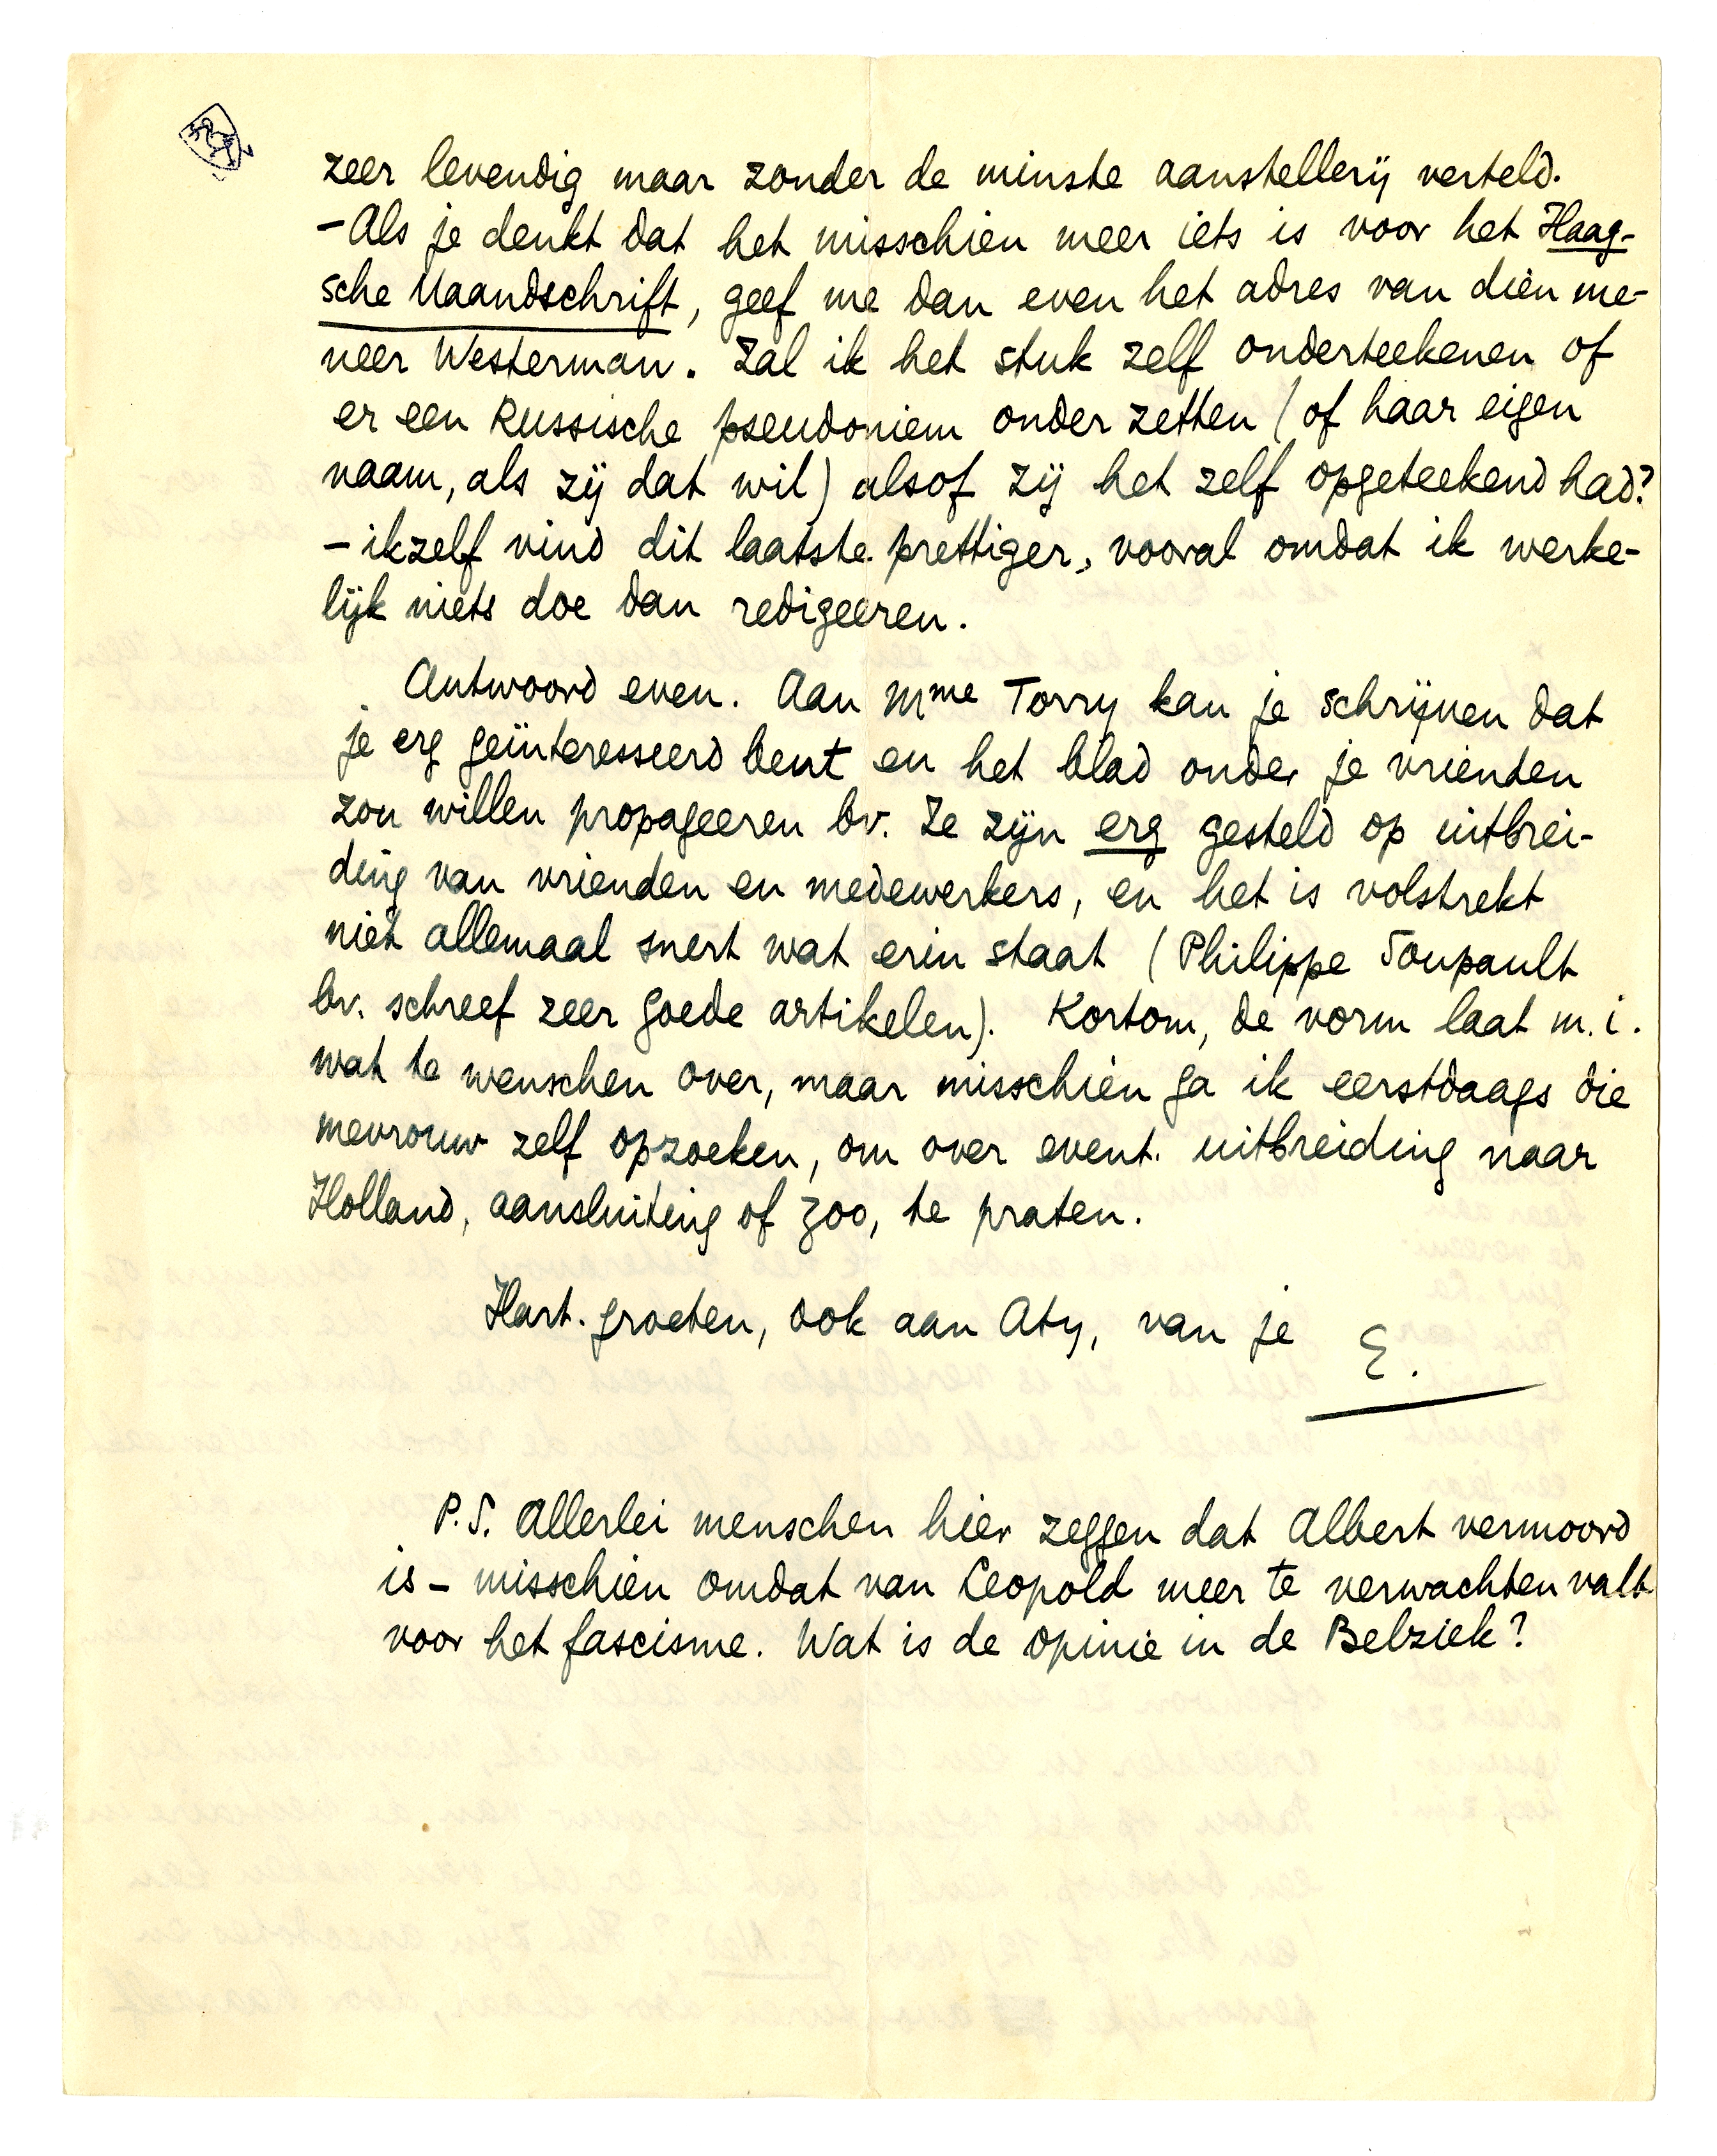 zeer levendig maar zonder de minste aanstellerij verteld.
– Als je denkt dat het misschien meer iets is voor het Haag-
sche Maandschrift, geef me dan even het adres van dien me-
neer Westerman. Zal ik het stuk zelf onderteekenen of
er een Russische pseudoniem onder zetten (of haar eigen
naam, als zij dat wil) alsof zij het zelf opgeteekend had?
– ikzelf vind dit laatste prettiger, vooral omdat ik werke-
lijk niets doe dan redigeeren.
Antwoord even. Aan Mme Torry kan je schrijven dat
je erg geïnteresseerd bent en het blad onder je vrienden
zou willen propageeren bv. Ze zijn erg gesteld op uitbrei-
ding van vrienden en medewerkers, en het is volstrekt
niet allemaal snert wat erin staat (Philippe Soupault
bv. schreef zeer goede artikelen). Kortom, de vorm laat m.i.
wat te wenschen over, maar misschien ga ik eerstdaags die
mevrouw zelf opzoeken, om over event. uitbreiding naar
Holland, aansluiting of zoo, te praten.
Hart. groeten, ook aan Aty, van je
E.
P.S. Allerlei menschen hier zeggen dat Albert vermoord
is – misschien omdat van Leopold meer te verwachten valt
voor het fascisme. Wat is de opinie in de Belziek?